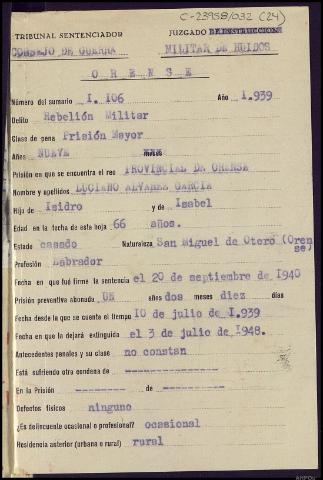 C-23958/032 (24)
TRIBUNAL SENTENCIADOR JUZGADO DE INSTRUCCION
CONSEJO DE GUERRA MILITAR DE HUIDOS
O R E N S E
Número del sumario I.106 Año I.939
Delito Rebelión Militar
Clase de pena Prisión Mayor
Años NUEVE meses
Prisión en que se encuentra el reo PROVINCIAL DE ORENSE
Nombre y apellidos LUCIANO ALVAREZ GARCIA
Hijo de Isidro y de Isabel
Edad en la fecha de esta hoja 66 años.
Estado casado Naturaleza San Miguel de Otero (Oren
se)
Profesión Labrador
Fecha en que fué firme la sentencia el 20 de septiembre de I940
Prisión preventiva abonada UN años dos meses diez días
Fecha desde la que se cuenta el tiempo I0 de julio de I.939
Fecha en que la dejará extinguida el 3 de julio de I948.
Antecedentes penales y su clase no constan
Está sufriendo otra condena de ---------
En la Prisión --------- de ---------
Defectos físicos ninguno
¿Es delincuente ocasional o profesional? ocasional
Residencia anterior (urbana o rural) rural